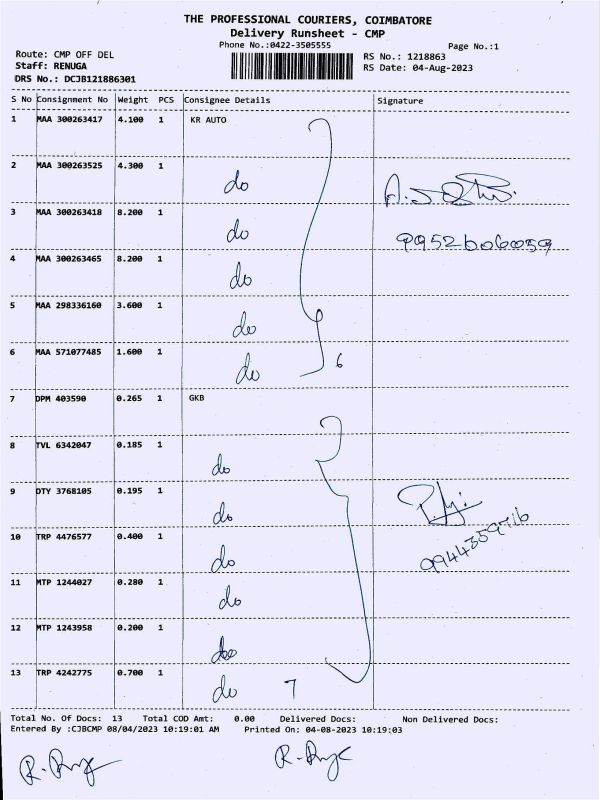 THE PROFESSIONAL COURIERS, COIMBATORE
Delivery Runsheet - CMP
Phone No.:0422-3505555 Page No.:1
Route: CMP OFF DEL RS No.: 1218863
Staff: RENUGA RS Date: 04-Aug-2023
DRS No.: DCJB121886301
S No Consignment No Weight PCS Consignee Details Signature
1 MAA 300263417 4.100 1 KR AUTO
2 MAA 300263525 4.300 1 do
3 MAA 300263418 8.200 1 do
9952606059
4 MAA 300263465 8.200 1 do
5 MAA 298336160 3.600 1 do
6 MAA 571077485 1.600 1 do 6
7 DPM 403590 0.265 1 GKB
8 TVL 6342047 0.185 1 do
9 DTY 3768105 0.195 1 do
10 TRP 4476577 0.400 1 do
11 MTP 1244027 0.280 1 do
12 MTP 1243958 0.200 1 do
13 TRP 4242775 0.700 1 do 7
Total No. Of Docs: 13 Total COD Amt: 0.00 Delivered Docs: Non Delivered Docs:
Entered By :CJBCMP 08/04/2023 10:19:01 AM Printed On: 04-08-2023 10:19:03